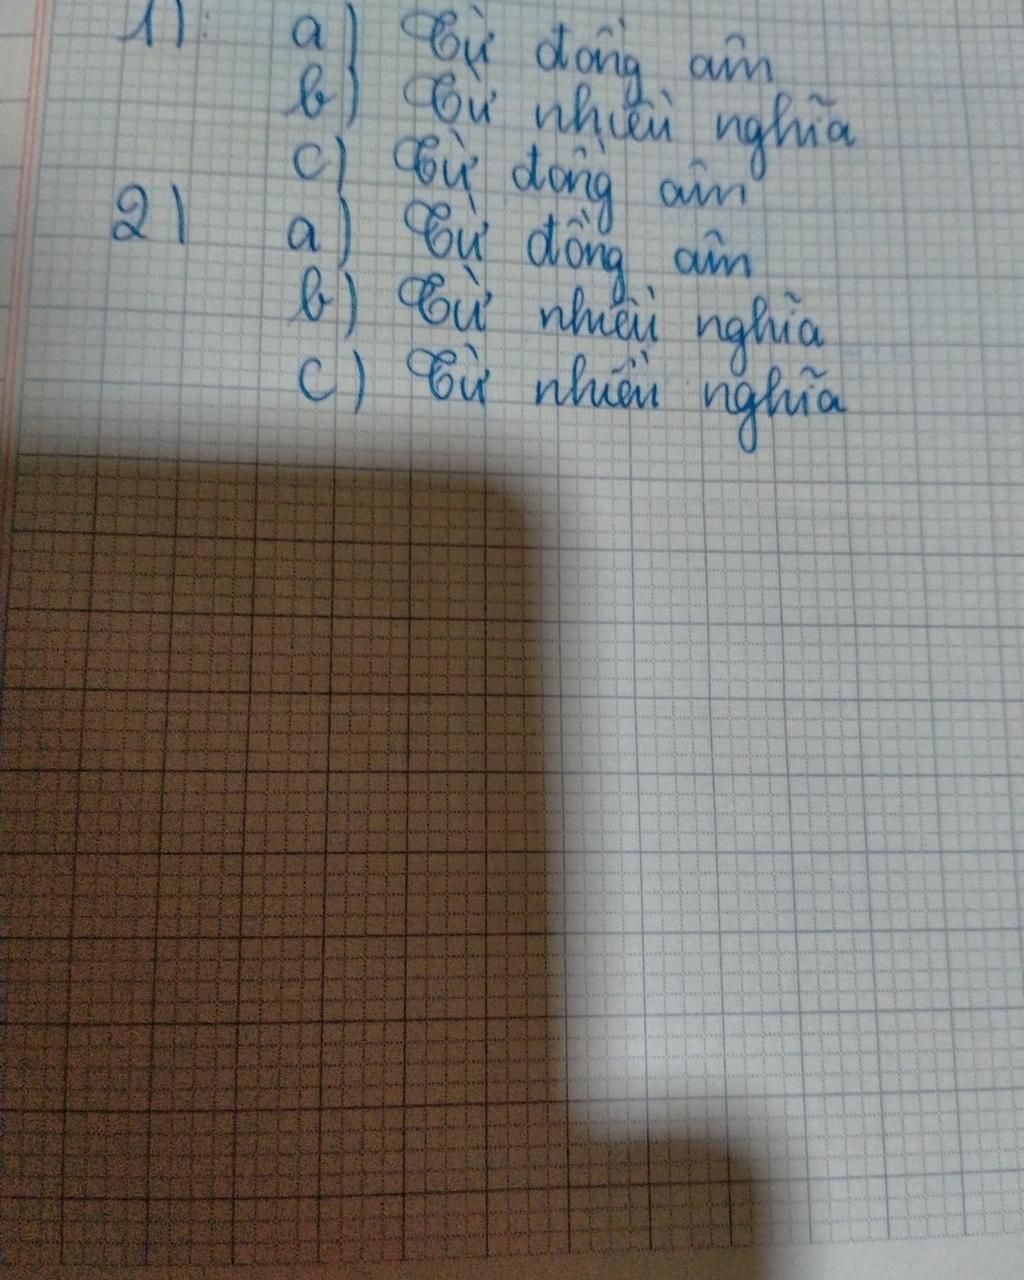 1): a) Từ đồng âm
b) Từ nhiều nghĩa
c) Từ đồng âm
2) a) Từ đồng âm
b) Từ nhiều nghĩa
c) Từ nhiều nghĩa